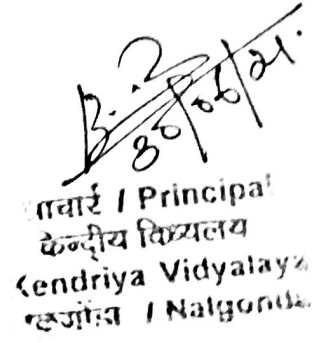 30/06/21.
प्राचार्य / Principal
केन्द्रीय विध्यलय
Kendriya Vidyalaya
/ Nalgonda